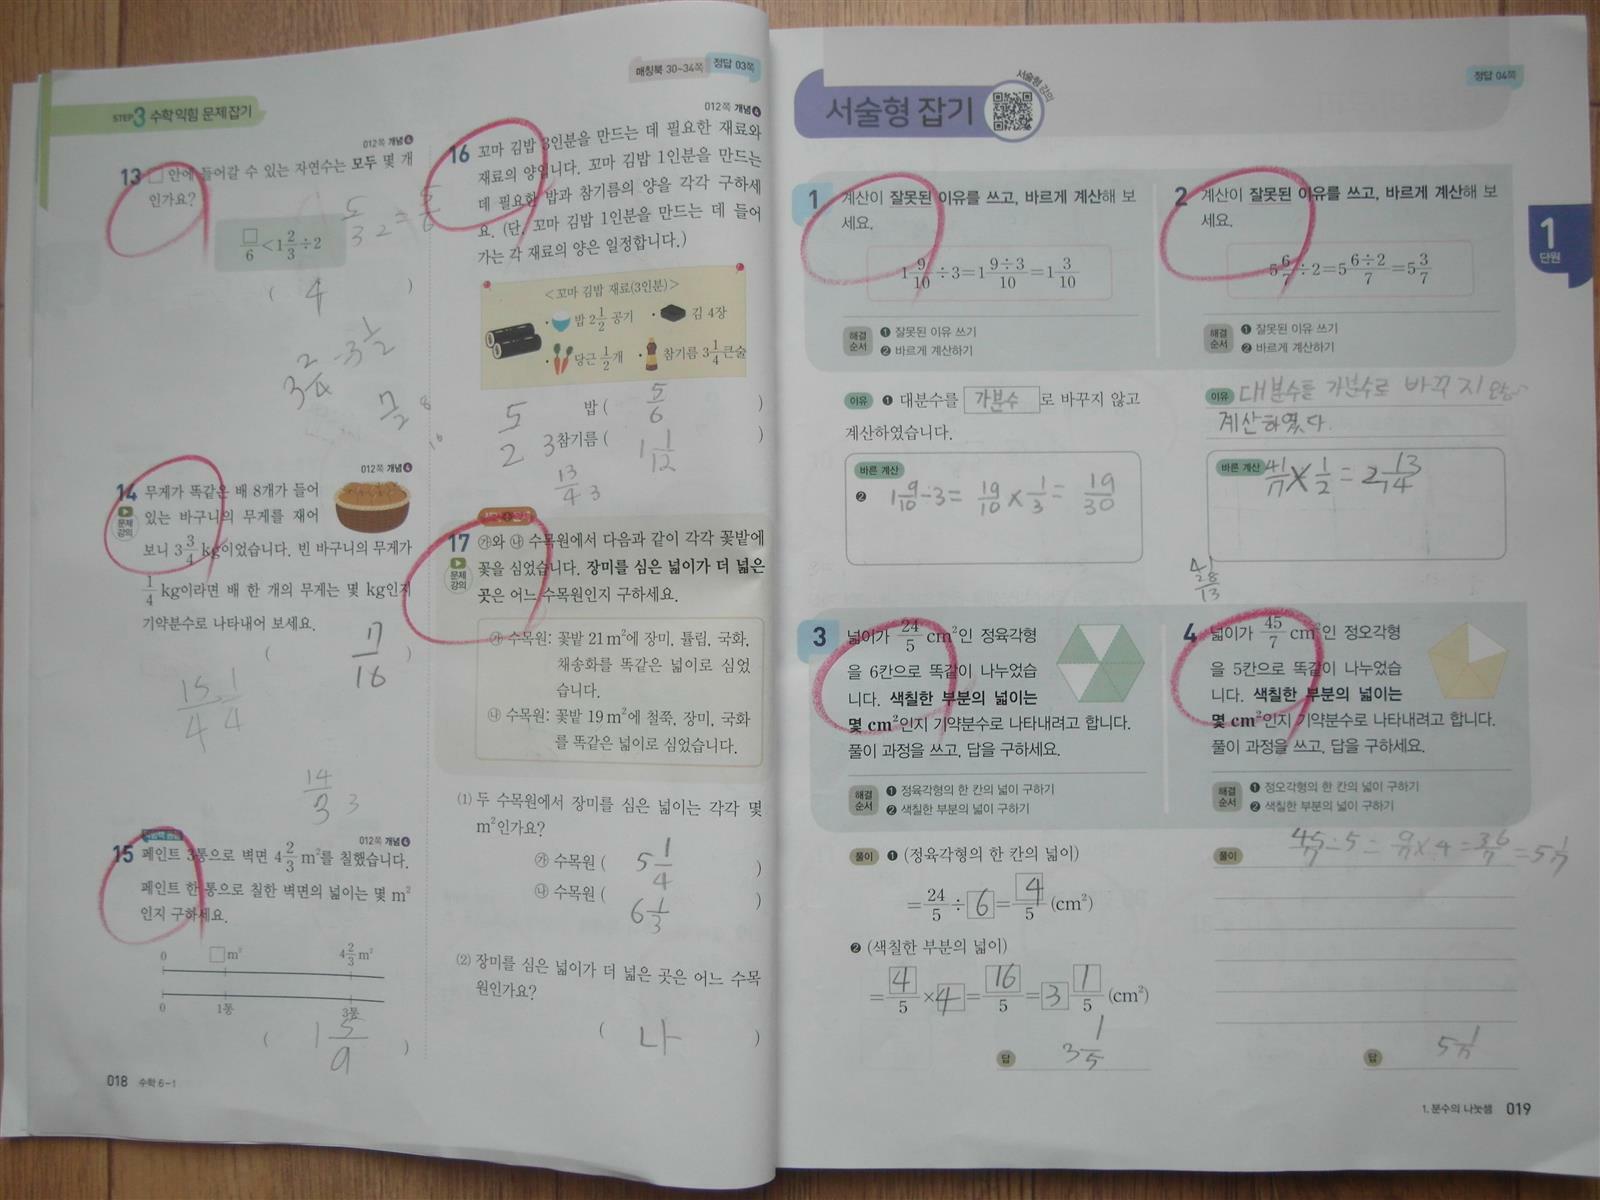 매칭북 30~34쪽 정답 03쪽
STEP3 수학익힘 문제잡기
012쪽 개념 4
13 □ 안에 들어갈 수 있는 자연수는 모두 몇 개
인가요?
□/6 < 1 2/3 ÷ 2
5/3 2 = 5/6
( 4 )
3 2/4 3 1/2
7/2 8
012쪽 개념 4
14 무게가 똑같은 배 8개가 들어
문제 강의
있는 바구니의 무게를 재어
보니 3 3/4 kg이었습니다. 빈 바구니의 무게가
1/4 kg이라면 배 한 개의 무게는 몇 kg인지
기약분수로 나타내어 보세요.
( 7/16 )
15/4 1/4
14/3 3
012쪽 개념 4
15 페인트 3통으로 벽면 4 2/3 m²를 칠했습니다.
페인트 한 통으로 칠한 벽면의 넓이는 몇 m²
인지 구하세요.
0 □ m² 4 2/3 m²
0 1통 3통
( 1 5/9 )
018 수학 6-1
012쪽 개념 4
16 꼬마 김밥 3인분을 만드는 데 필요한 재료와
재료의 양입니다. 꼬마 김밥 1인분을 만드는
데 필요한 밥과 참기름의 양을 각각 구하세
요. (단, 꼬마 김밥 1인분을 만드는 데 들어
가는 각 재료의 양은 일정합니다.)
<꼬마 김밥 재료(3인분)>
• 밥 2 1/2 공기 • 김 4장
• 당근 1/2개 • 참기름 3 1/4 큰술
밥 ( 5/6 )
5/2 3
참기름 ( 1 1/12 )
13/4 3
17 ㉮와 ㉯ 수목원에서 다음과 같이 각각 꽃밭에
문제 강의
꽃을 심었습니다. 장미를 심은 넓이가 더 넓은
곳은 어느 수목원인지 구하세요.
㉮ 수목원: 꽃밭 21 m²에 장미, 튤립, 국화,
채송화를 똑같은 넓이로 심었
습니다.
㉯ 수목원: 꽃밭 19 m²에 철쭉, 장미, 국화
를 똑같은 넓이로 심었습니다.
(1) 두 수목원에서 장미를 심은 넓이는 각각 몇
m²인가요?
㉮ 수목원 ( 5 1/4 )
㉯ 수목원 ( 6 1/3 )
(2) 장미를 심은 넓이가 더 넓은 곳은 어느 수목
원인가요?
( 나 )
정답 04쪽
서술형 잡기
서술형 강의
1 단원
1 계산이 잘못된 이유를 쓰고, 바르게 계산해 보
세요.
1 9/10 ÷ 3 = 1 9÷3/10 = 1 3/10
해결 순서
❶ 잘못된 이유 쓰기
❷ 바르게 계산하기
이유 ❶ 대분수를 가분수 로 바꾸지 않고
계산하였습니다.
바른 계산
❷ 1 9/10 ÷ 3 = 19/10 × 1/3 = 19/30
2 계산이 잘못된 이유를 쓰고, 바르게 계산해 보
세요.
5 6/7 ÷ 2 = 5 6÷2/7 = 5 3/7
해결 순서
❶ 잘못된 이유 쓰기
❷ 바르게 계산하기
이유 대분수를 가분수로 바꾸지 않고
계산하였다.
바른 계산
41/7 × 1/2 = 2 13/14
41
28
13
3 넓이가 24/5 cm²인 정육각형
을 6칸으로 똑같이 나누었습
니다. 색칠한 부분의 넓이는
몇 cm²인지 기약분수로 나타내려고 합니다.
풀이 과정을 쓰고, 답을 구하세요.
해결 순서
❶ 정육각형의 한 칸의 넓이 구하기
❷ 색칠한 부분의 넓이 구하기
풀이 ❶ (정육각형의 한 칸의 넓이)
= 24/5 ÷ 6 = 4/5 (cm²)
❷ (색칠한 부분의 넓이)
= 4/5 × 4 = 16/5 = 3 1/5 (cm²)
답 3 1/5
4 넓이가 45/7 cm²인 정오각형
을 5칸으로 똑같이 나누었습
니다. 색칠한 부분의 넓이는
몇 cm²인지 기약분수로 나타내려고 합니다.
풀이 과정을 쓰고, 답을 구하세요.
해결 순서
❶ 정오각형의 한 칸의 넓이 구하기
❷ 색칠한 부분의 넓이 구하기
풀이 45/7 ÷ 5 = 9/7 × 4 = 36/7 = 5 1/7
답 5 1/7
1. 분수의 나눗셈 019